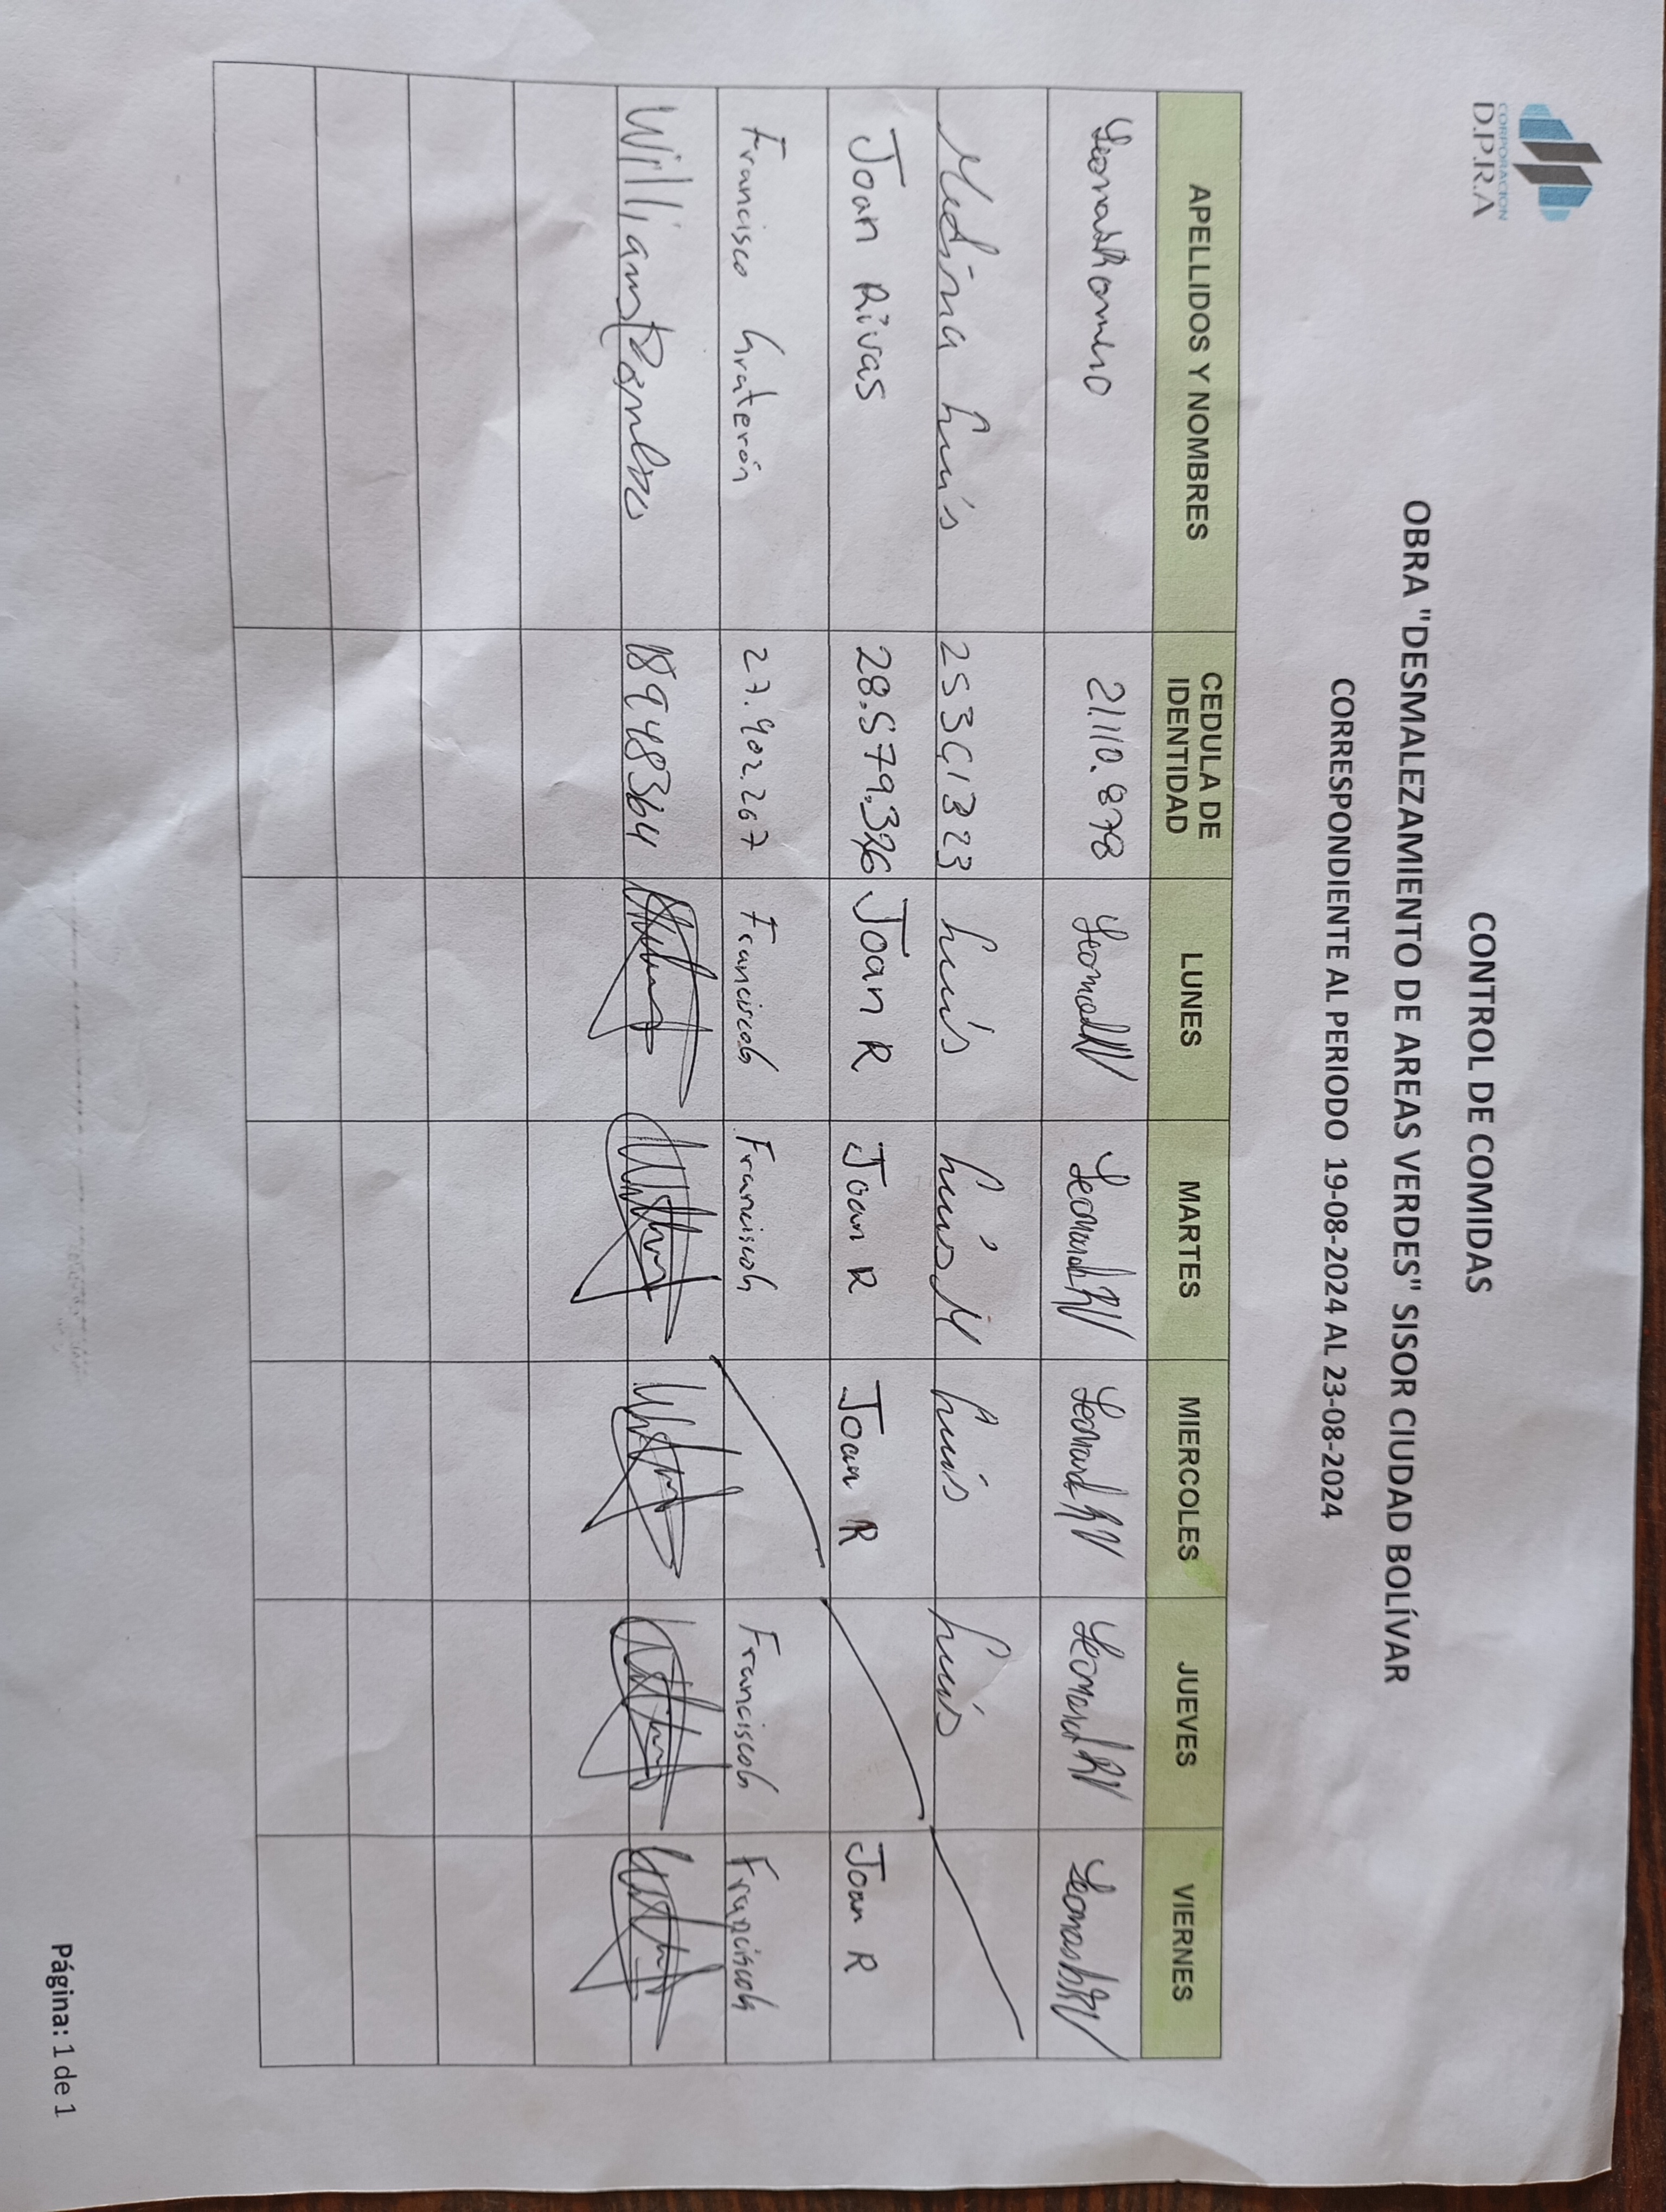 CORPORACION
D.P.R.A
CONTROL DE COMIDAS
OBRA "DESMALEZAMIENTO DE AREAS VERDES" SISOR CIUDAD BOLÍVAR
CORRESPONDIENTE AL PERIODO 19-08-2024 AL 23-08-2024
APELLIDOS Y NOMBRES CEDULA DE IDENTIDAD LUNES MARTES MIERCOLES JUEVES VIERNES
Leonard Romero 21.110.878 Leonard RV Leonard RV Leonard RV Leonard RV Leonard RV
Medina Luís Luís Luís M Luís Luís
Joan Rivas 28.579.326 Joan R Joan R Joan R Joan R
Francisco Graterón 27.902.267 Francisco G Francisco G Francisco G Francisco G
Williams 18948364
Página: 1 de 1